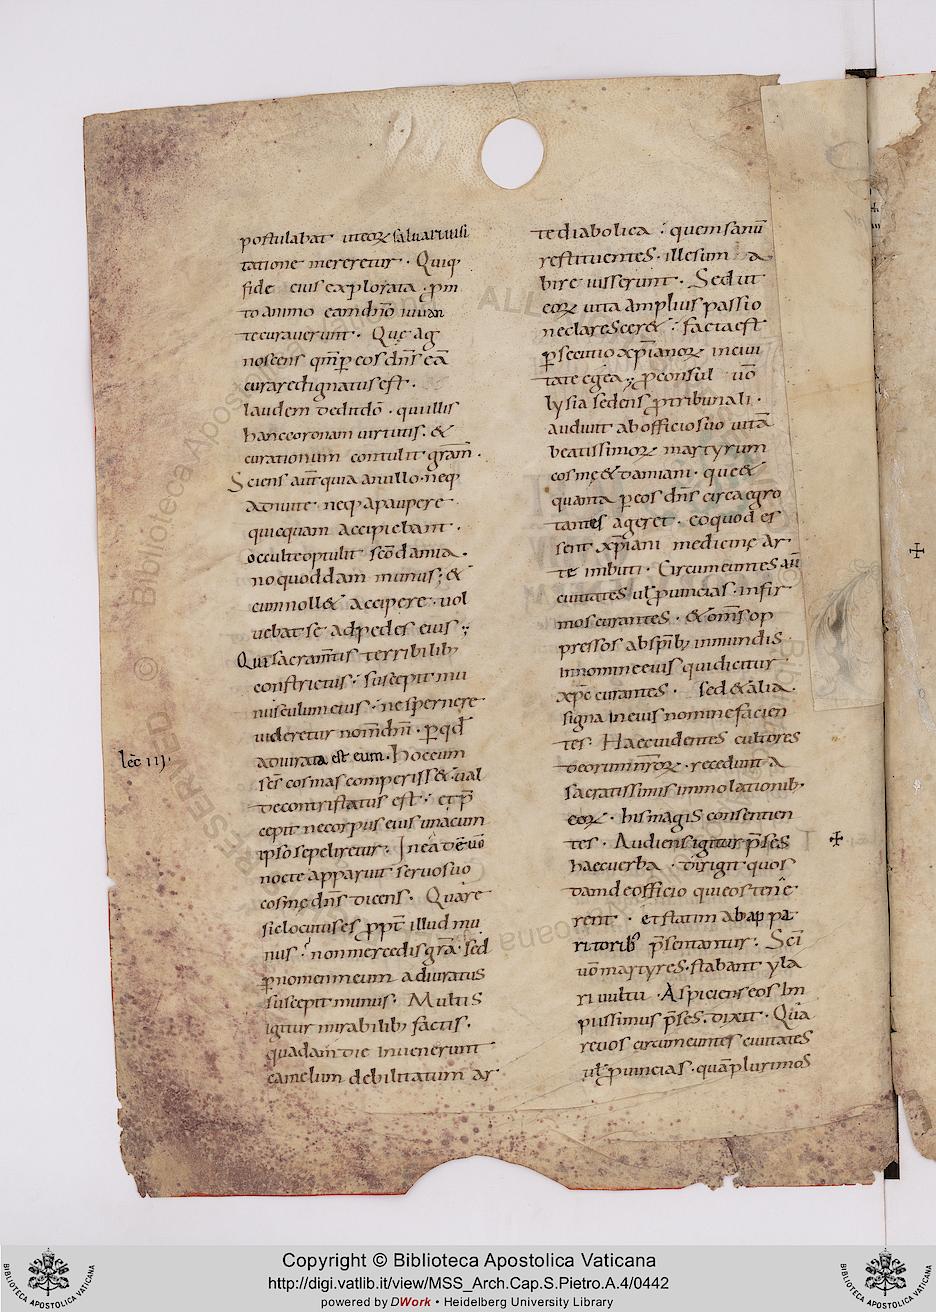 postulabat ut eorȝ saluari uisi
tatione mereretur · Quiqȝ
fide eius explorata · ꝓm
to animo eam dn̄o iuuan
te curauerunt · Quę ag
noscens qm̄ ꝑ eos dn̄s eā
curare dignatus est ·
laudem dedit dō · qui illis
hanc coronam uirtutis · &
curationum contulit gram̄ ·
Sciens aut̄ quia a nullo · neqȝ
a diuite · neqȝ a paupere ·
quicquam accipiebant ·
occulte optulit sc̄o damia ·
no quoddam munus ; &
cum noll& accipere · uol
uebat se ad pedes eius ;
Qui sacram̄tis terribilibȝ
constrictus · suscepit mu
nusculum eius · ne spernere
uideretur nom̄ dn̄i · ꝑ qd̄
adiurata est eum · Hoc cum
lēc iij ·
sc̄s cosmas comperiss& · ual
de contristatus est · et p̄
cepit ne corpus eius una cum
ipso sepeliretur · In ea dē uō
nocte apparuit seruo suo
cosmę dn̄s dicens · Quare
sic locutus es ꝓpt̄ illud mu
nus ? non mercedis gr̄a · sed
ꝑ nomen meum adiuratus
suscepit munus · Multis
igitur mirabilibȝ factis ·
quadam die inuenerunt
camelum debilitatum ar
te diabolica · quem sanū
restituentes · illesum a
bire iusserunt · Sed ut
eorȝ uita amplius passio
ne claresceret · facta est
ꝑsecutio xp̄ianorȝ in ciui
tate egea ; ꝓconsul uō
lysia sedens ꝓ tribunali ·
audiuit ab officio suo uitā
beatissimorȝ martyrum
cosmę & damiani · que &
quanta ꝑ eos dn̄s circa egro
tantes ageret · eo quod es
sent xp̄iani medicinę ar
te imbuti · Circumeuntes aū
ciuitates ul̄ ꝓuincias · infir
mos curantes · & om̄s op
pressos ab sp̄ibȝ inmundis
in nomine eius qui dicitur
xp̄c curantes · sed & alia
signa in eius nomine facien
tes · Haec uidentes cultores
deorum nr̄orȝ · recedunt a
sacratissimis immolationibȝ
eorȝ · his magis consentien
tes · Audiens igitur p̄ses
haec uerba · dirigit quos
dam de officio qui eos tene
rent · et statim ab appa
ritoribȝ p̄sentantur · Sc̄i
uō martyres · stabant yla
ri uultu · Aspiciens eos im
piissimus p̄ses · dixit · Qua
re uos circumeuntes ciuitates
ul̄ ꝓuincias · quā plurimos
Copyright © Biblioteca Apostolica Vaticana
http://digi.vatlib.it/view/MSS_Arch.Cap.S.Pietro.A.4/0442
powered by DWork • Heidelberg University Library